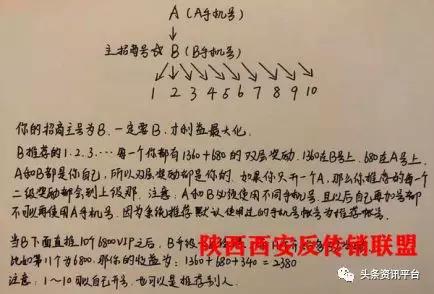 A (A手机号)
主招商号☆ B (B手机号)
1 2 3 4 5 6 7 8 9 10
你的招商主号为B,一定要B,才利益最大化.
B推荐的1.2.3.…每一个你都有1360+680的双层奖励.1360在B号上.680在A号上.
A和B都是你自己,所以双层奖励都是你的.如果你只开一个A,那么你推荐的每一个
二级奖励都会到上级那.注意:A和B必须使用不同手机号.且以后自再加号都
不可以再使用A手机号.因为系统推荐默认使用过的手机号标号为推荐标号.
当B下面直推10个6800VIP之后,B升级
比如第11个为6800.那你的收益为:1360+680+340=2380
注意:1~10可以自己开号.也可以是推荐别人.
陕西西安反传销联盟
头条资讯平台